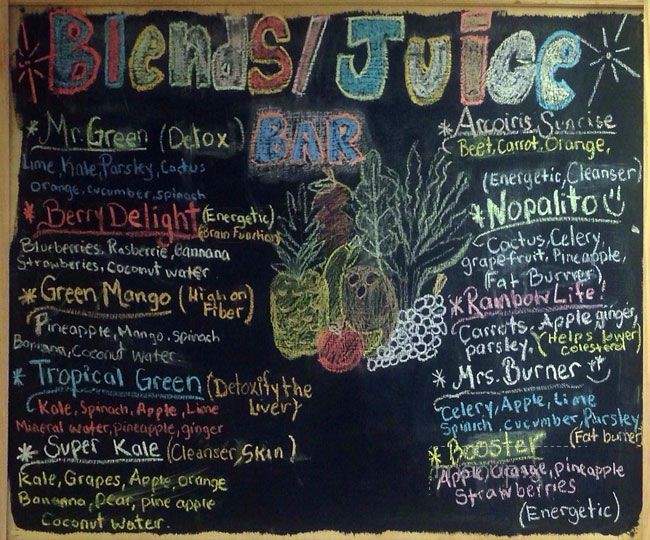 Blends/Juice
BAR
* Mr. Green (Detox)
Lime, Kale, Parsley, Cactus
Orange, cucumber, spinach
* Berry Delight (Energetic)
(Brain Function)
Blueberries, Rasberrie, Bannana
Strawberries, Coconut water
* Green Mango (High on
Fiber)
Pineapple, Mango, Spinach
Banana, Coconut Water
* Tropical Green (Detoxify the
Liver)
Kale, Spinach, Apple, Lime
Mineral water, pineapple, ginger
* Super Kale (Cleanser, Skin)
Kale, Grapes, Apple, orange
Bananna, Pear, pine apple
Coconut water.
* Arcoiris Sunrise
Beet, Carrot, Orange,
(Energetic, Cleanser)
* Nopalito
Cactus, Celery,
grapefruit, Pineapple,
(Fat Burnner)
* Rainbow Life!
Carrots, Apple ginger,
parsley, (Helps lower
Colesterol)
* Mrs. Burner
Celery, Apple, Lime
Spinich, cucumber, Parsley
(Fat burner)
* Booster
Apple, Orange, pineapple
Strawberries
(Energetic)